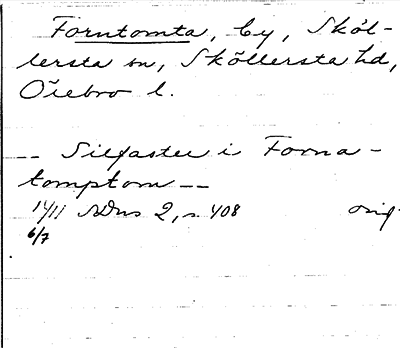 Forntomta, by, Sköl-
lersta sn, Sköllersta hd,
Örebro l.
-- Silfastee i Forna-
tomptom --
1411 SDns 2, s. 408 orig.
6/7